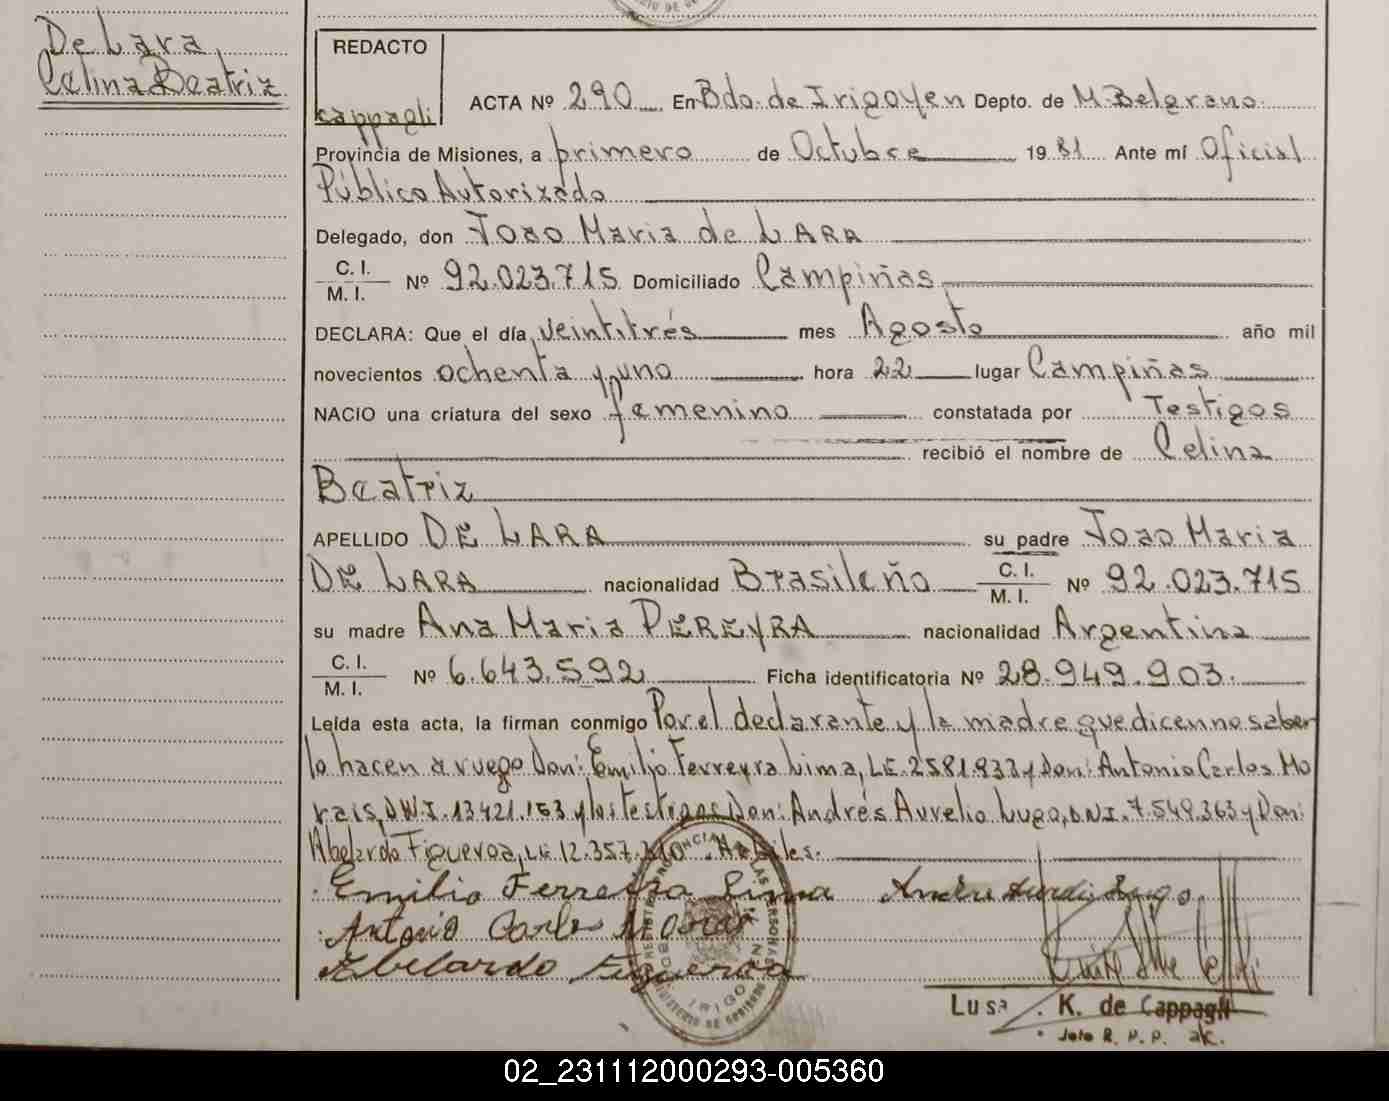 De Lara
Celina Beatriz
REDACTO
cappagli
ACTA Nº 290 En Bdo. de Irigoyen Depto. de M. Belgrano
Provincia de Misiones, a primero de Octubre 19 81 Ante mí Oficial
Público Autorizado
Delegado, don Joao Maria de LARA
C. I.
M. I. Nº 92.023.715 Domiciliado Campiñas
DECLARA: Que el día veintitrés mes Agosto año mil
novecientos ochenta y uno hora 22 lugar Campiñas
NACIO una criatura del sexo femenino constatada por Testigos
recibió el nombre de Celina
Beatriz
APELLIDO DE LARA su padre Joao Maria
DE LARA nacionalidad Brasileño C. I. M. I. Nº 92.023.715
su madre Ana Maria PEREYRA nacionalidad Argentina
C. I.
M. I. Nº 6.643.592 Ficha identificatoria Nº 28.949.903.
Leída esta acta, la firman conmigo Por el declarante y la madre que dicen no saber
lo hacen a ruego Don: Emilio Ferreyra Lima, LE. 2581.933 y Don: Antonio Carlos Mo
rais, DNI. 13421.153 y los testigos Don: Andrés Aurelio Lugo, DNI. 7.549.363 y Don:
Abelardo Figueroa, LE 12.357.
Emilio Ferreira Lima Lugo
Antonio Carlo
Abelardo Figueroa
K. de Cappagli
Jefe R. P. P.
02_231112000293-005360